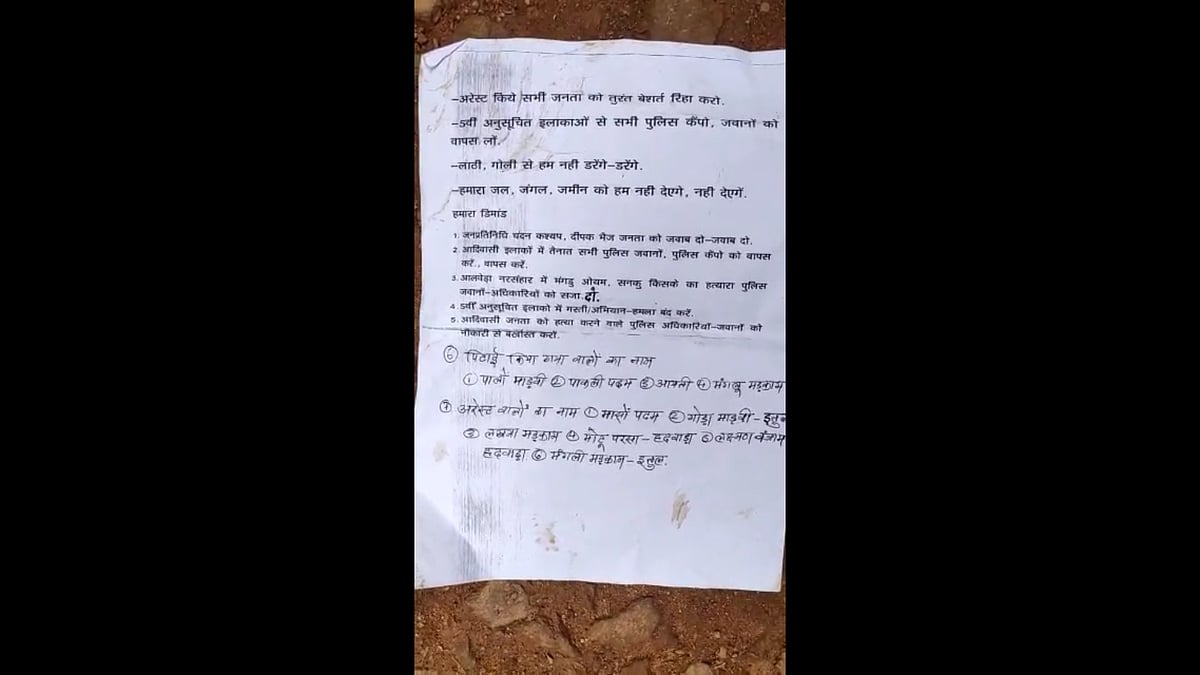 –अरेस्ट किये सभी जनता को तुरंत बेशर्त रिहा करो.
–5वीं अनुसूचित इलाकाओं से सभी पुलिस कैंपो, जवानों को
वापस लों.
–लाठी, गोली से हम नही डरेंगे–डरेंगे.
–हमारा जल, जंगल, जमीन को हम नही देएगे, नही देएगें.
हमारा डिमांड
1. जनप्रतिनिधि चंदन कश्यप, दीपक बैज जनता को जवाब दो–जवाब दो.
2. आदिवासी इलाकों में तेनात सभी पुलिस जवानों, पुलिस कैंपो को वापस
करें., वापस करें.
3. आलवेड़ा नरसंहार में भंगडु ओयम, सनकु किसके का हत्यारा पुलिस
जवानों–अधिकारियों को सजा दो.
4. 5वीं अनुसूचित इलाको में गस्ती/अभियान–हमला बंद करें.
5. आदिवासी जनता को हत्या करने वाले पुलिस अधिकारियों–जवानों को
नौकारी से बर्खास्त करों.
⑥ पिटाई किया वालों का नाम
① पालो माड़वी ② पाकली पदम ③ आयती ④ मंगलू मड़काम
⑦ अरेस्ट वालों का नाम ① मासों पदम ② गोड़ा माड़वी – इतुल
③ लखमा मड़काम ④ मोटू परसा – हदवाड़ा ⑤ लक्ष्मण
हदवाड़ा ⑥ मंगली मड़काम – इतुल.